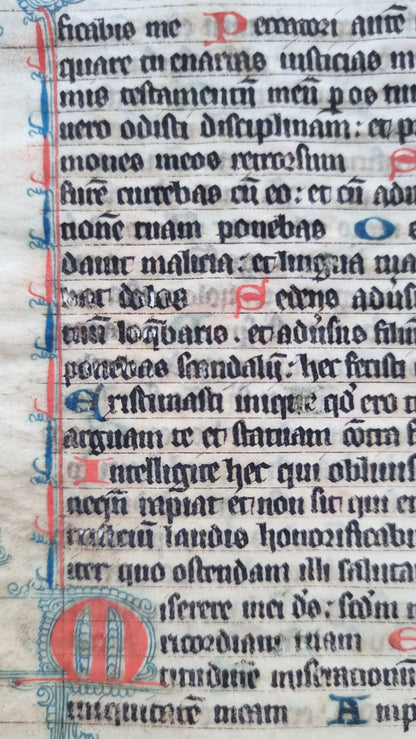 ficabis me Peccatori autē
quare tu enarras iusticias m
mis testamentū meū p os tuu
uero odisti disciplinam: et p
mones meos retrorsum S
furē currebas cū eo: et cū ad
tionē tuam ponebas O
dauit malicia: et lingua tua
bat dolos Sedens adūs
tuū loq̄baris. et adūsus filiu
ponebas scandalū: hec fecisti
Existimasti inique qd̓ ero t
arguam te et statuam cōtra f
Intelligite hec qui obliuis
nequn̄ rapiat et non sit qui er
rificiū laudis honorificabi
iter quo ostendam illi saluta
Miserere mei ds̄: scdm̄
ricordiam tuam E
titudinē miserationū
iniquitatē meam Amp